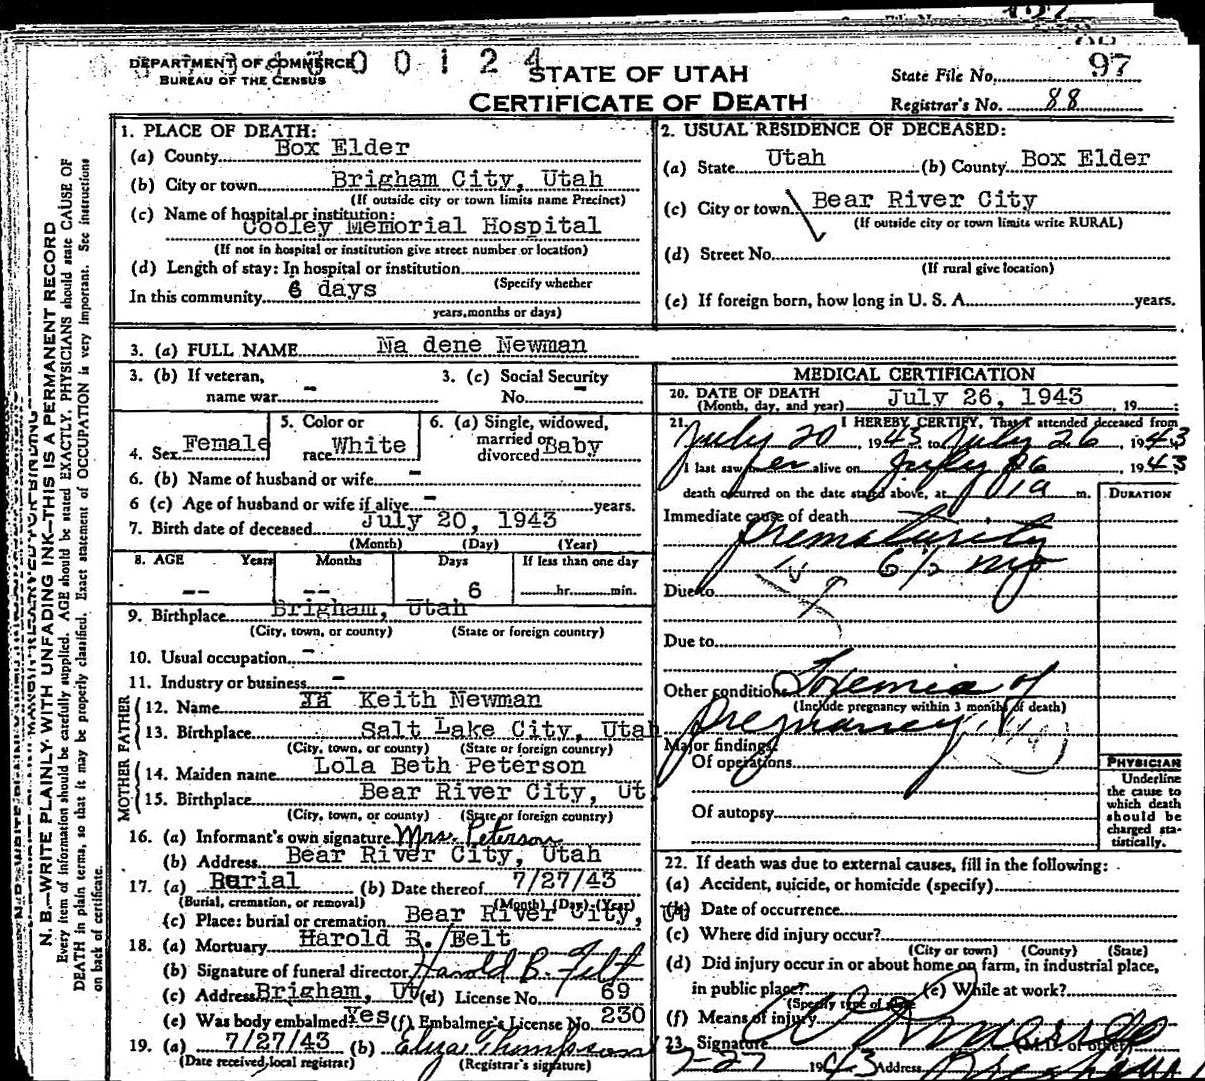 DEPARTMENT OF COMMERCE
BUREAU OF THE CENSUS
0 0 1 2 4
STATE OF UTAH
CERTIFICATE OF DEATH
State File No. 97
Registrar's No. 88
N. B.—WRITE PLAINLY WITH UNFADING INK—THIS IS A PERMANENT RECORD
Every item of information should be carefully supplied. AGE should be stated EXACTLY. PHYSICIANS should state CAUSE OF
DEATH in plain terms, so that it may be properly classified. Exact statement of OCCUPATION is very important. See instructions
on back of certificate.
1. PLACE OF DEATH:
(a) County Box Elder
(b) City or town Brigham City, Utah
(If outside city or town limits name Precinct)
(c) Name of hospital or institution:
Cooley Memorial Hospital
(If not in hospital or institution give street number or location)
(d) Length of stay: In hospital or institution
(Specify whether
In this community 6 days
years, months or days)
2. USUAL RESIDENCE OF DECEASED:
(a) State Utah (b) County Box Elder
(c) City or town Bear River City
(If outside city or town limits write RURAL)
(d) Street No.
(If rural give location)
(e) If foreign born, how long in U. S. A. years.
3. (a) FULL NAME Na dene Newman
3. (b) If veteran, name war -
3. (c) Social Security No. -
4. Sex Female
5. Color or race White
6. (a) Single, widowed, married or divorced Baby
6. (b) Name of husband or wife -
6 (c) Age of husband or wife if alive - years.
7. Birth date of deceased July 20, 1943
(Month) (Day) (Year)
8. AGE Years Months Days If less than one day
-- -- 6 hr. min.
9. Birthplace Brigham, Utah
(City, town, or county) (State or foreign country)
10. Usual occupation -
11. Industry or business -
FATHER
12. Name Keith Newman
13. Birthplace Salt Lake City, Utah
(City, town, or county) (State or foreign country)
MOTHER
14. Maiden name Lola Beth Peterson
15. Birthplace Bear River City, Ut.
(City, town, or county) (State or foreign country)
16. (a) Informant's own signature Mrs. Peterson
(b) Address Bear River City, Utah
17. (a) Burial (b) Date thereof 7/27/43
(Burial, cremation, or removal) (Month) (Day) (Year)
(c) Place: burial or cremation Bear River City, Ut
18. (a) Mortuary Harold B. Felt
(b) Signature of funeral director Harold B. Felt
(c) Address Brigham, Ut (d) License No. 69
(e) Was body embalmed? Yes (f) Embalmer's License No. 230
19. (a) 7/27/43 (b) Eliza Thompson
(Date received local registrar) (Registrar's signature)
MEDICAL CERTIFICATION
20. DATE OF DEATH
(Month, day, and year) July 26, 1943, 19 :
21. I HEREBY CERTIFY, That I attended deceased from
July 20, 1943 to July 26, 1943
I last saw her alive on July 26, 1943
death occurred on the date stated above, at 1 a m.
DURATION
Immediate cause of death
Prematurity
6 1/2 mo
Due to
Due to
Other conditions Toxemia of
(Include pregnancy within 3 months of death)
pregnancy
Major findings:
Of operations
Of autopsy
PHYSICIAN
Underline
the cause to
which death
should be
charged sta-
tistically.
22. If death was due to external causes, fill in the following:
(a) Accident, suicide, or homicide (specify)
(b) Date of occurrence
(c) Where did injury occur?
(City or town) (County) (State)
(d) Did injury occur in or about home on farm, in industrial place,
in public place? (e) While at work?
(Specify type of place)
(f) Means of injury
23. Signature (M.D. or other)
7-27 1943 Address Brigham